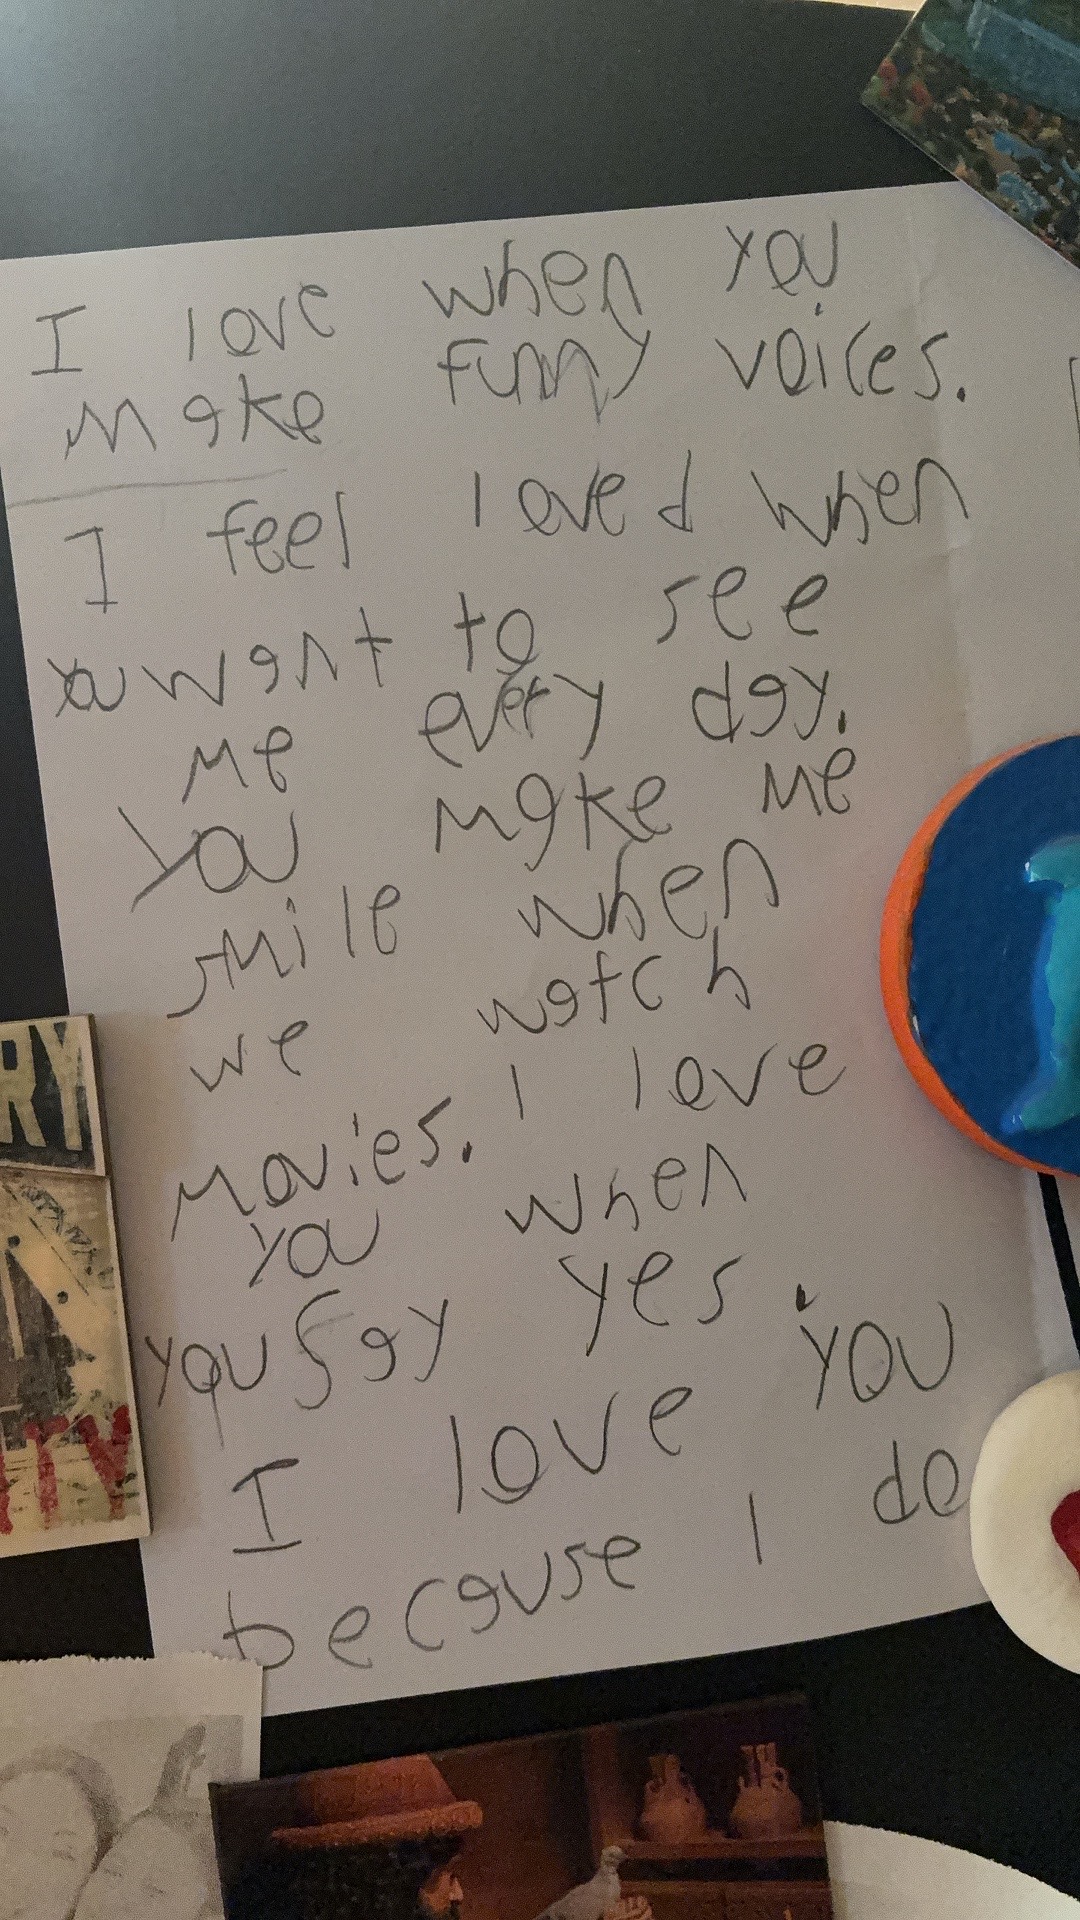 I love when you
make funny voices.
I feel loved when
you want to see
me every day.
You make me
smile when
we watch
movies. I love
you when
you say yes.
I love you
because I do
RY
TY